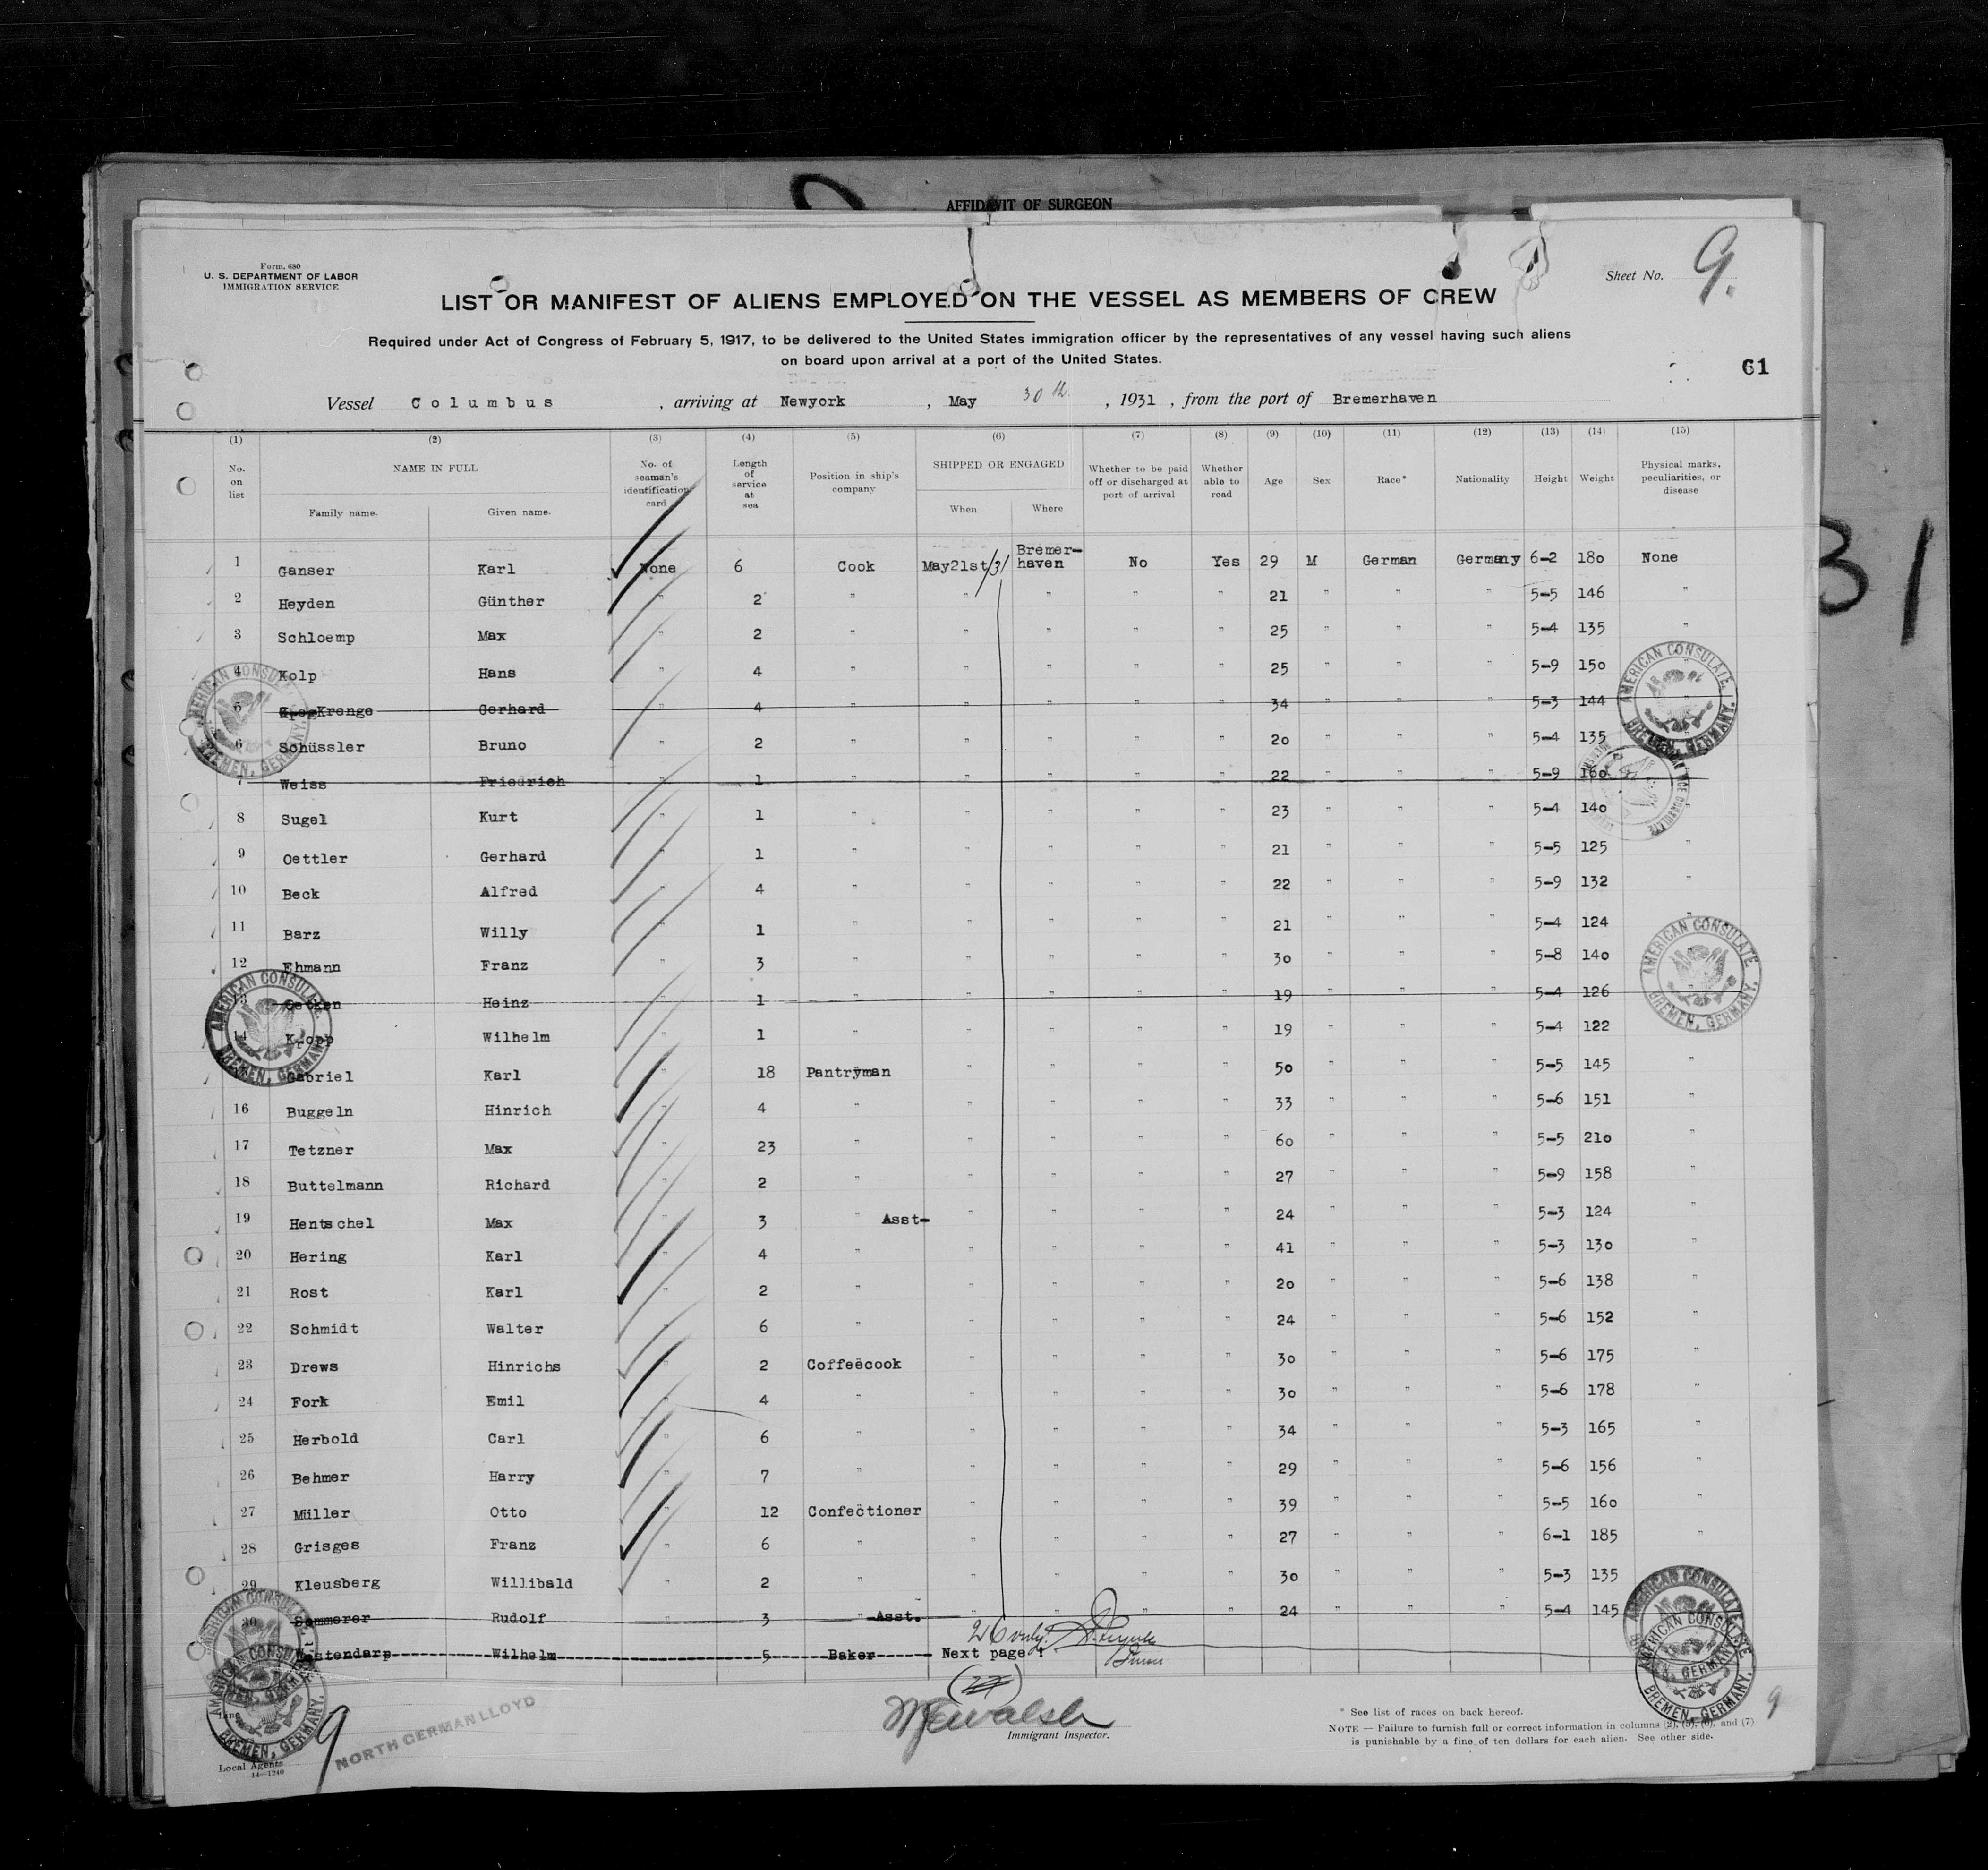 AFFIDAVIT OF SURGEON
Form. 680
U. S. DEPARTMENT OF LABOR
IMMIGRATION SERVICE
Sheet No. 9.
LIST OR MANIFEST OF ALIENS EMPLOYED ON THE VESSEL AS MEMBERS OF CREW
Required under Act of Congress of February 5, 1917, to be delivered to the United States immigration officer by the representatives of any vessel having such aliens
on board upon arrival at a port of the United States.
61
Vessel Columbus , arriving at Newyork , May 30th. , 1931 , from the port of Bremerhaven
(1) (2) (3) (4) (5) (6) (7) (8) (9) (10) (11) (12) (13) (14) (15)
No. on list NAME IN FULL Family name. Given name. No. of seaman's identification card Length of service at sea Position in ship's company SHIPPED OR ENGAGED When Where Whether to be paid off or discharged at port of arrival Whether able to read Age Sex Race* Nationality Height Weight Physical marks, peculiarities, or disease
1 Ganser Karl None 6 Cook May21st/31 Bremer-haven No Yes 29 M German Germany 6-2 180 None
2 Heyden Günther " 2 " " " " " 21 " " " 5-5 146 "
3 Schloemp Max " 2 " " " " " 25 " " " 5-4 135 "
4 Kolp Hans " 4 " " " " " 25 " " " 5-9 150 "
5 Krenge Gerhard " 4 " " " " " 34 " " " 5-3 144 "
6 Schüssler Bruno " 2 " " " " " 20 " " " 5-4 135
7 Weiss Friedrich " 1 " " " " " 22 " " " 5-9 160
8 Sugel Kurt " 1 " " " " " 23 " " " 5-4 140
9 Oettler Gerhard " 1 " " " " " 21 " " " 5-5 125 "
10 Beck Alfred " 4 " " " " " 22 " " " 5-9 132 "
11 Barz Willy " 1 " " " " " 21 " " " 5-4 124 "
12 Ehmann Franz " 3 " " " " " 30 " " " 5-8 140 "
13 Oetken Heinz " 1 " " " " " 19 " " " 5-4 126 "
14 Kropp Wilhelm " 1 " " " " " 19 " " " 5-4 122
Gabriel Karl " 18 Pantryman " " " " 50 " " " 5-5 145 "
16 Buggeln Hinrich " 4 " " " " " 33 " " " 5-6 151 "
17 Tetzner Max " 23 " " " " " 60 " " " 5-5 210 "
18 Buttelmann Richard " 2 " " " " " 27 " " " 5-9 158 "
19 Hentschel Max " 3 " Asst- " " " " 24 " " " 5-3 124 "
20 Hering Karl " 4 " " " " " 41 " " " 5-3 130 "
21 Rost Karl " 2 " " " " " 20 " " " 5-6 138 "
22 Schmidt Walter " 6 " " " " " 24 " " " 5-6 152 "
23 Drews Hinrichs " 2 Coffeecook " " " " 30 " " " 5-6 175 "
24 Fork Emil " 4 " " " " " 30 " " " 5-6 178 "
25 Herbold Carl " 6 " " " " " 34 " " " 5-3 165 "
26 Behmer Harry " 7 " " " " " 29 " " " 5-6 156 "
27 Müller Otto " 12 Confectioner " " " " 39 " " " 5-5 160 "
28 Grisges Franz " 6 " " " " " 27 " " " 6-1 185 "
29 Kleusberg Willibald " 2 " " " " " 30 " " " 5-3 135
30 Sommerer Rudolf " 3 " Asst. " " " " 24 " " " 5-4 145
Westendarp Wilhelm 5 Baker Next page !
26 only
(27)
MJ Walsh
Immigrant Inspector.
* See list of races on back hereof.
NOTE — Failure to furnish full or correct information in columns (2), (5), (6), and (7)
is punishable by a fine of ten dollars for each alien. See other side.
9
9
NORTH GERMAN LLOYD
Local Agents
14—1240
AMERICAN CONSULATE. BREMEN, GERMANY.
AMERICAN CONSULATE. BREMEN, GERMANY.
AMERICAN CONSULATE. BREMEN, GERMANY.
AMERICAN CONSULATE. BREMEN, GERMANY.
AMERICAN CONSULATE. BREMEN, GERMANY.
AMERICAN CONSULATE. BREMEN, GERMANY.
31